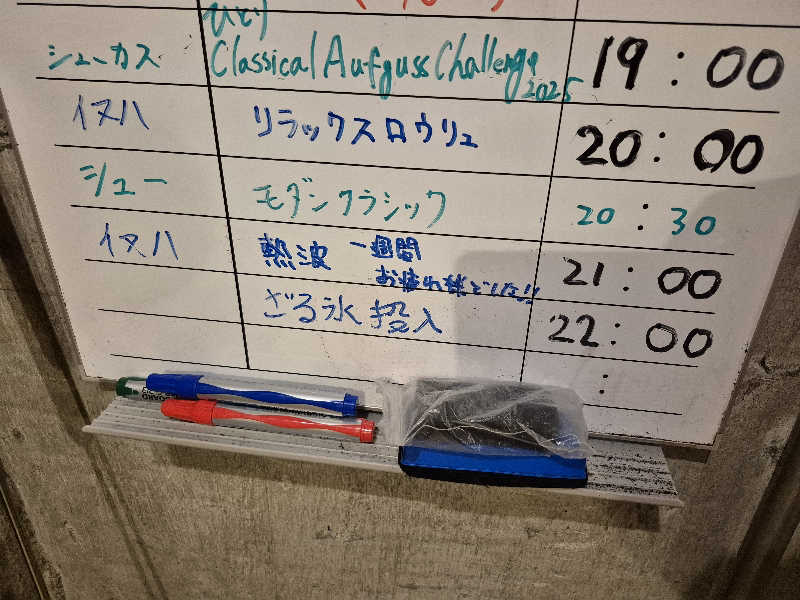 ひとり
シューカス Classical Aufguss Challenge 2025 19:00
イヌハ リラックスロウリュ 20:00
シュー モダンクラシック 20:30
イヌハ 熱波 一週間 21:00
お疲れ様でした!!
ざる氷 投入 22:00
: